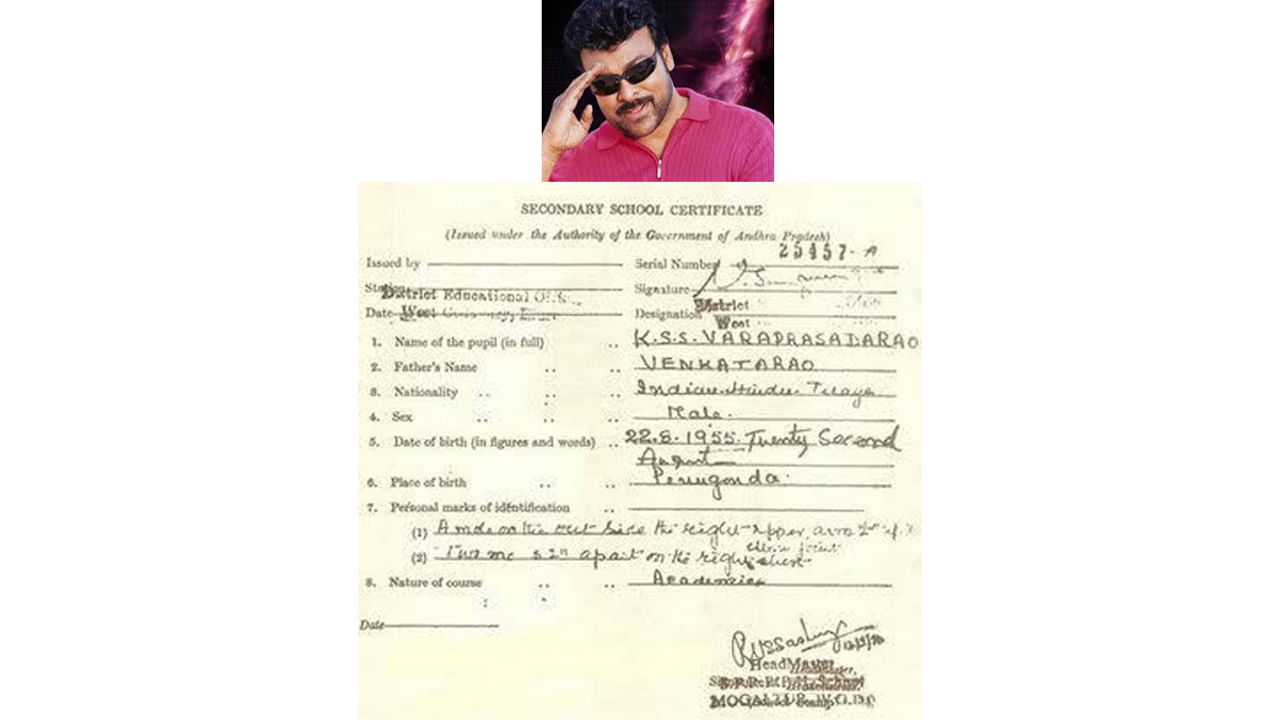 SECONDARY SCHOOL CERTIFICATE
(Issued under the Authority of the Government of Andhra Pradesh)
25457-A
Issued by
Serial Number
Station
District Educational
Signature
Date West
Designation
District
West
1. Name of the pupil (in full) .. K.S.S. VARAPRASADARAO
2. Father's Name .. .. VENKATARAO
3. Nationality .. .. .. Indian Hindu
4. Sex .. .. .. Male.
5. Date of birth (in figures and words) .. 22.8.1955. Twenty Second
August
6. Place of birth .. .. Penugonda.
7. Personal marks of identification ..
(1) A mole on the out side the right upper arm 2"
(2) Two 2" apart on the right
8. Nature of course .. .. Academic
Date
HeadMaster
School
MOGALTUR